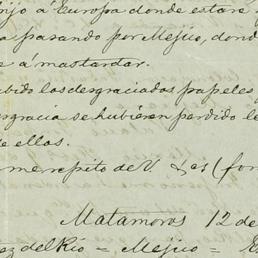 ijo á Europa donde estaré
a pasando por Mejico, dond
e á mas tardar.
bido los desgraciados papeles y
sgracia se hubieren perdido le
e ellos.
me repito de V.
Matamoros 12 de
ez del Rio = Mejico =